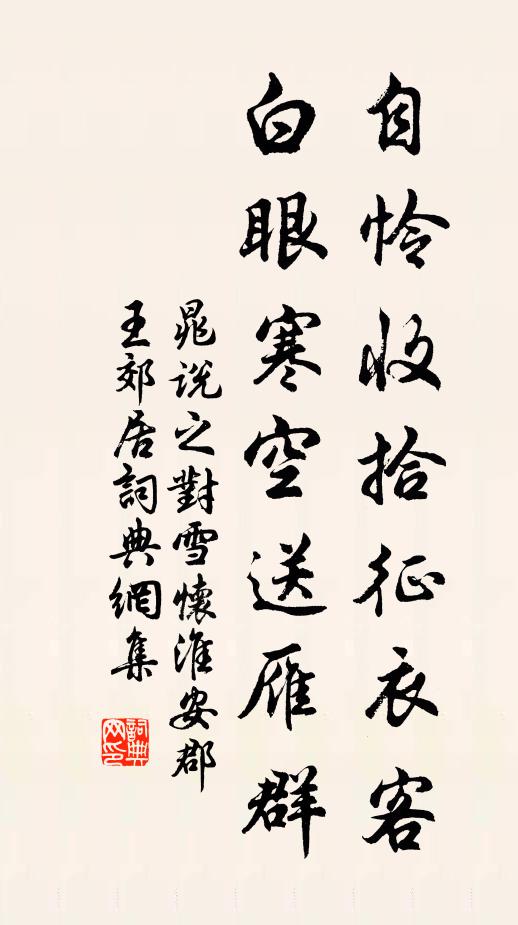 自怜收拾征衣客
白眼寒空送雁群
晁说之對雪懷淮安郡
王郊居詞典網集
詞典網印